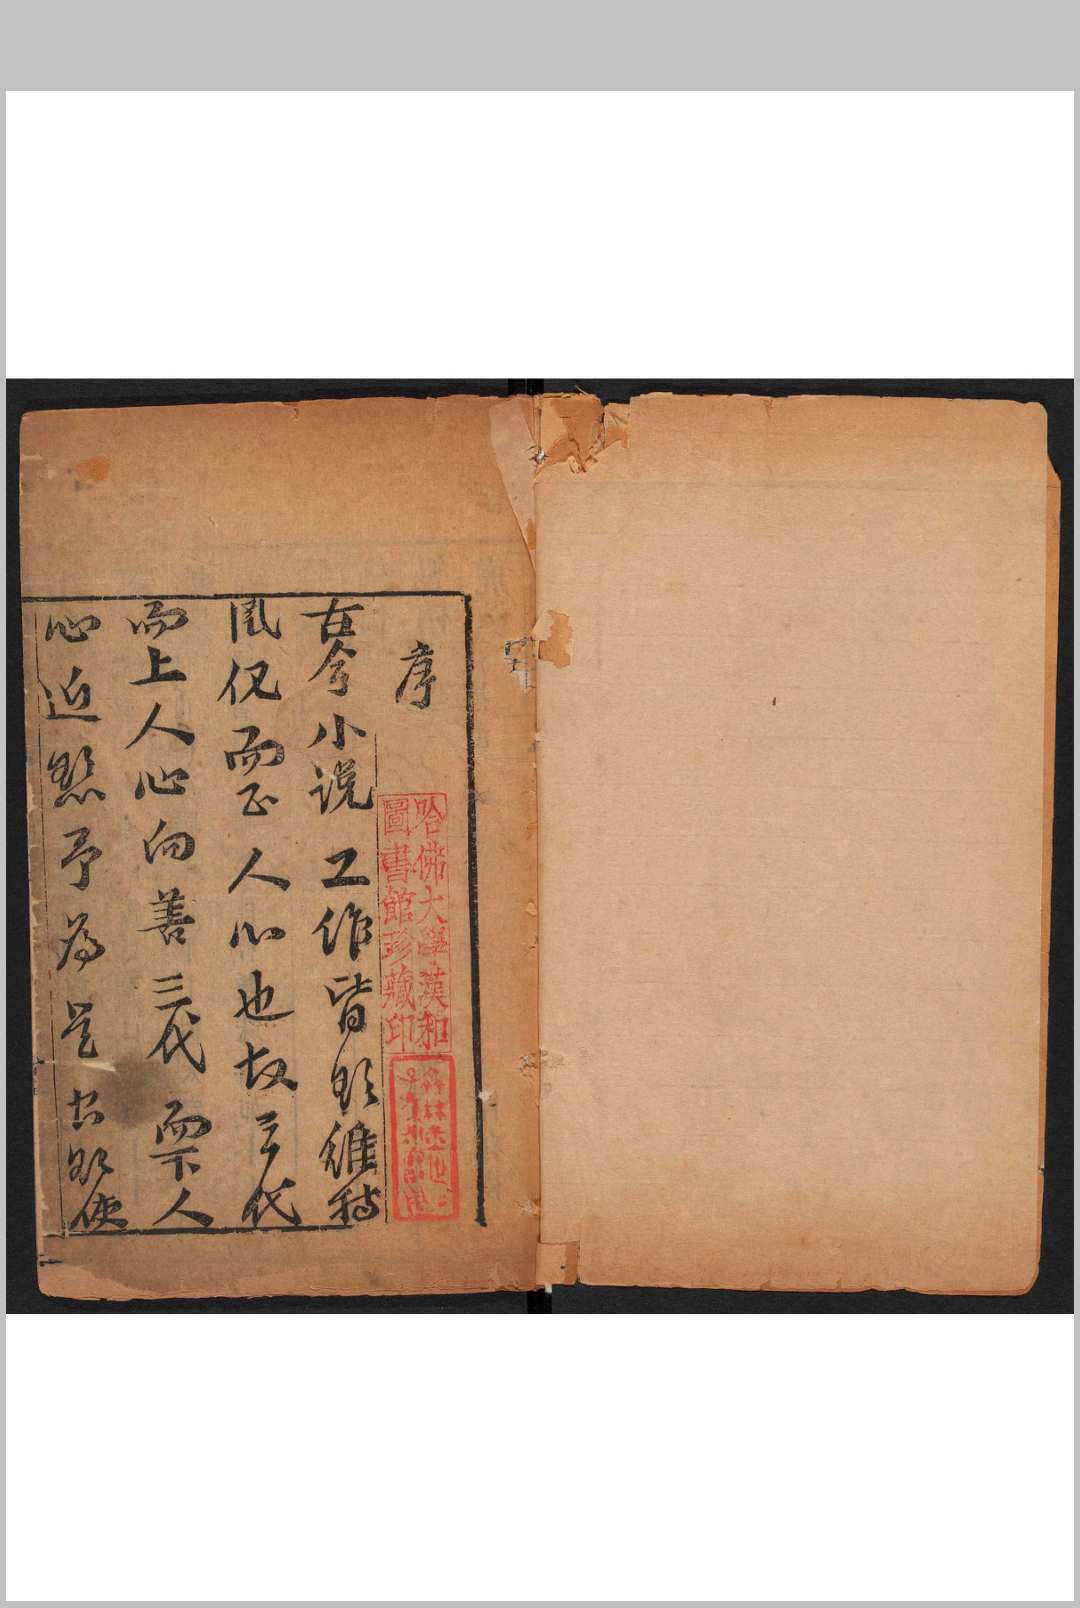 序
古今小說工作皆欲維持
風化而正人心也故三代
而上人心向善三代而下人
心近惡予為是書欲使
哈佛大學漢和
圖書館珍藏印